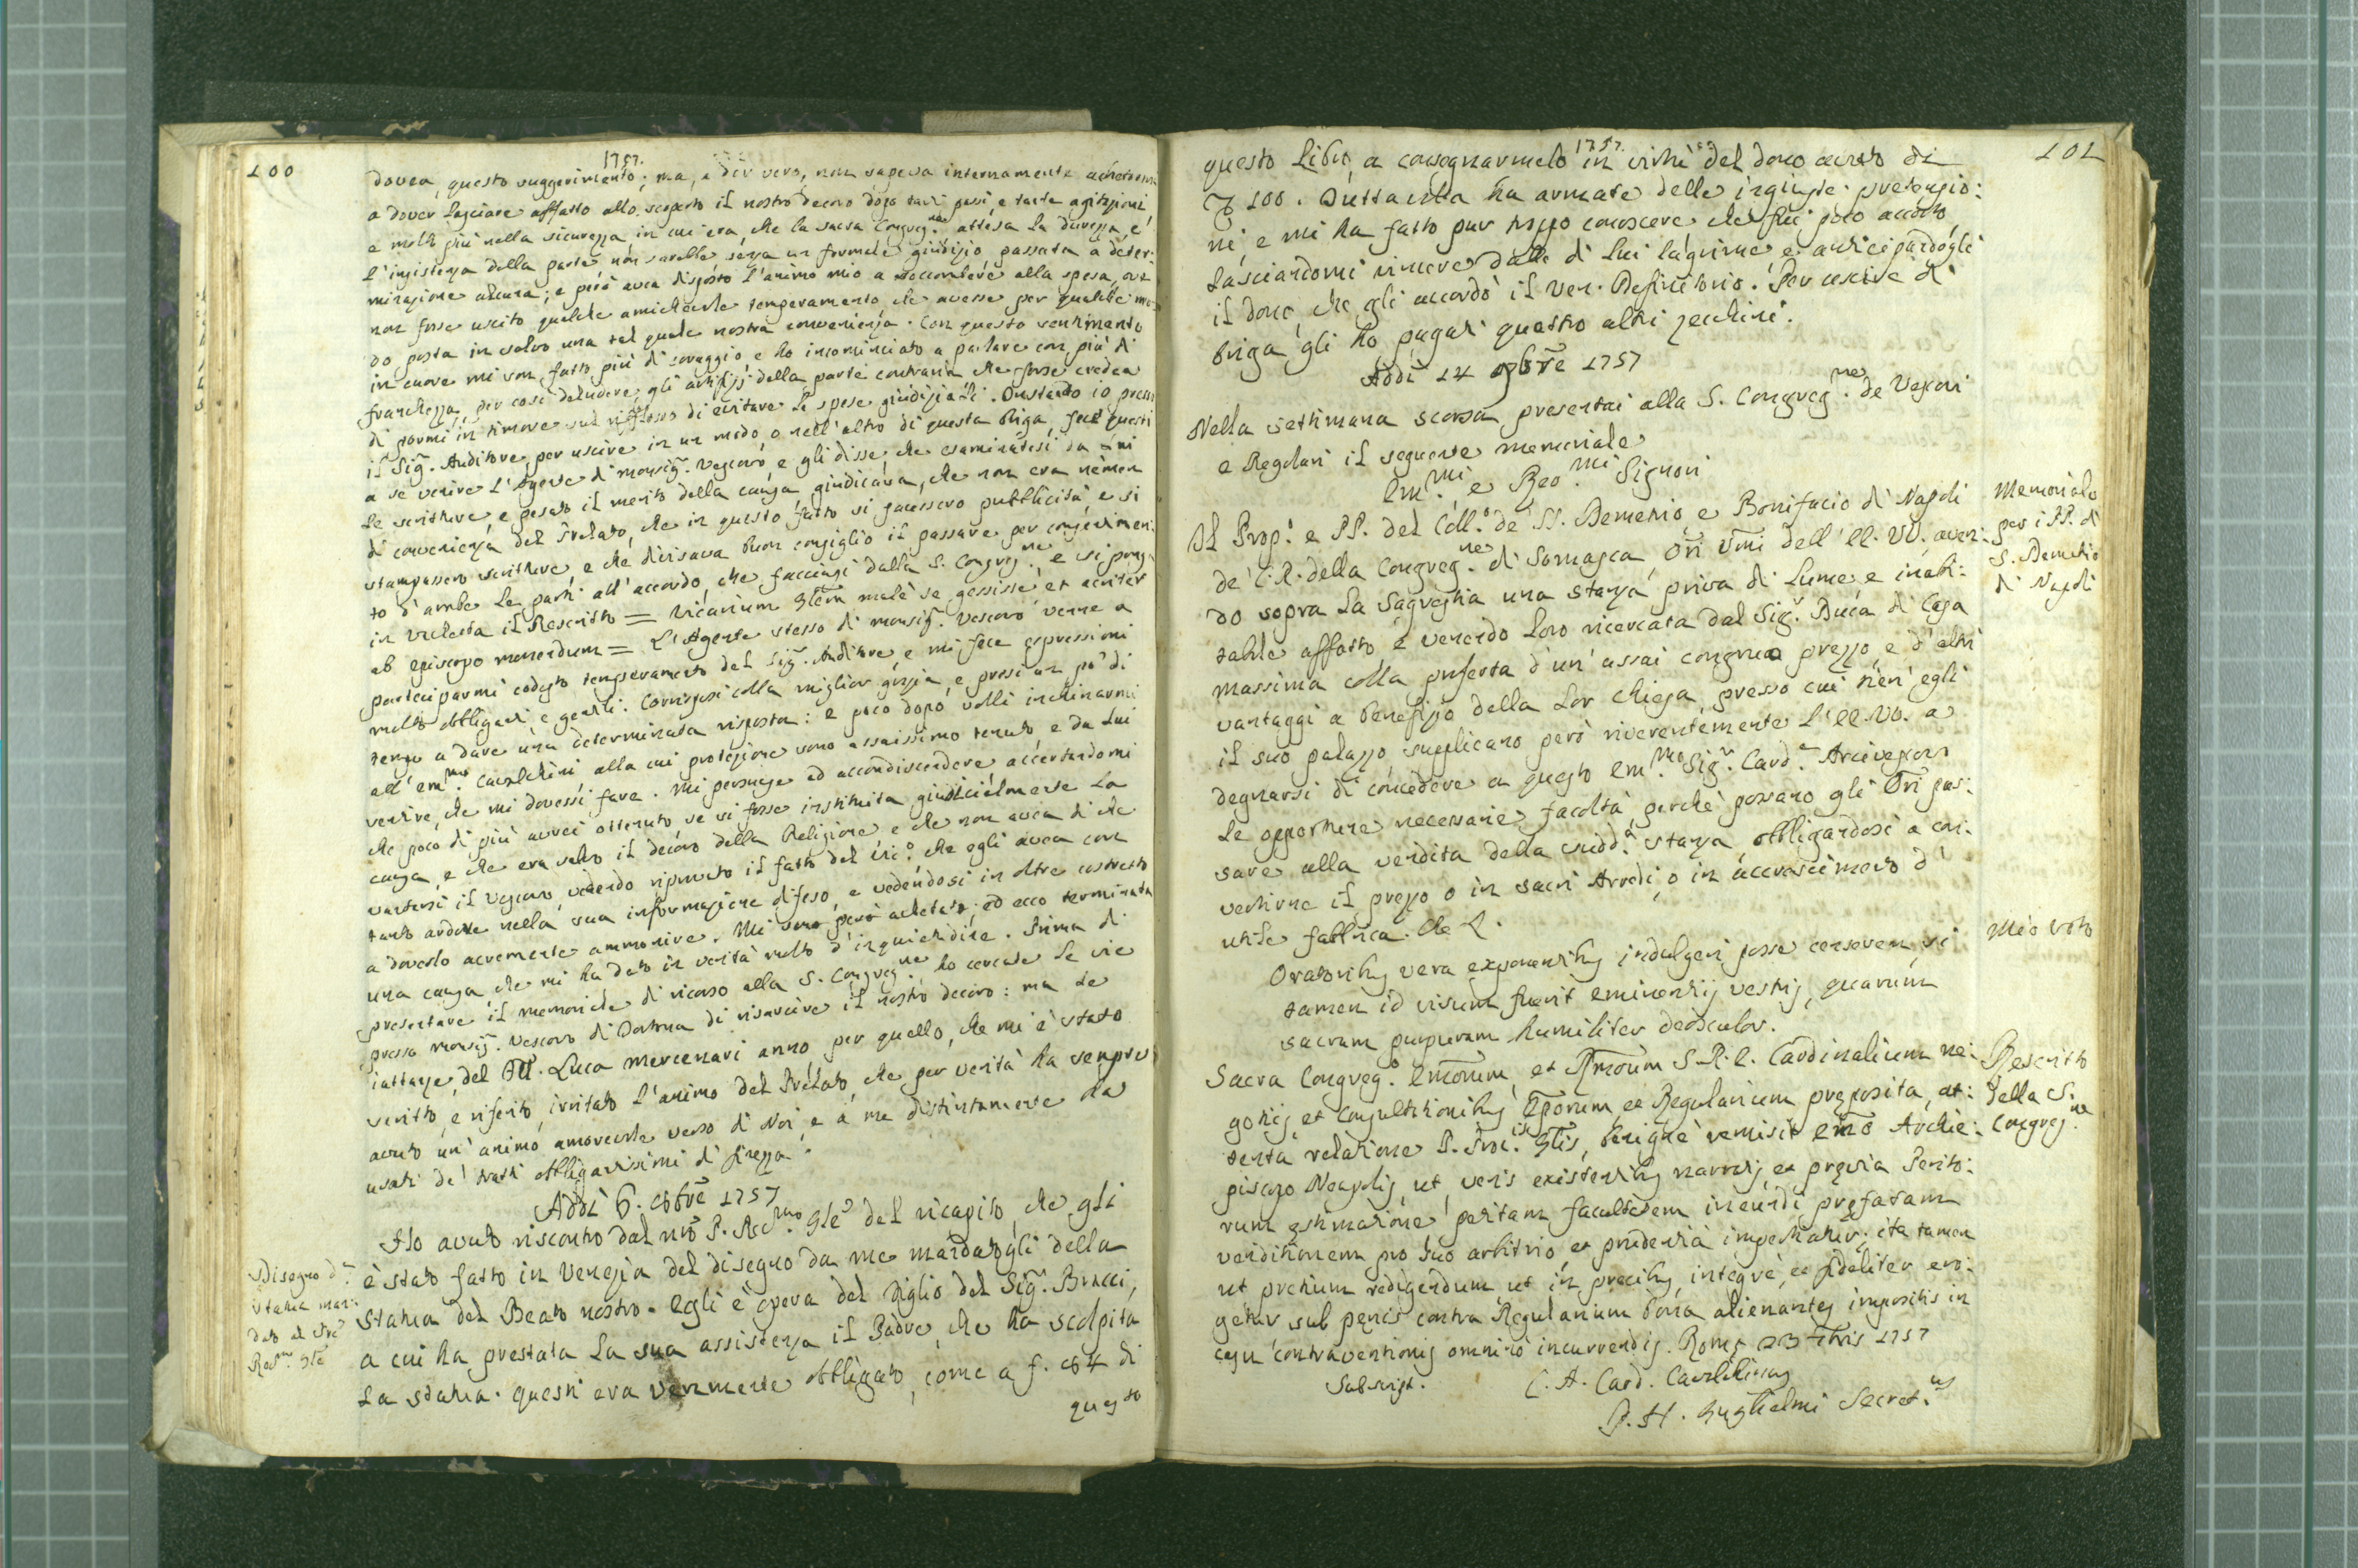 100
1757.
dovea questo suggerimento; ma, a dir vero, non sapeva internamente
a dover lasciare affatto allo scoperto il nostro decoro dopo tanti passi, e tante agitazioni
e molto più nella sicurezza, in cui era, che la sacra Congreg.ne attesa la durezza, e
l'insistenza della parte non sarebbe senza un formale giudizio passata a deter:
minazione alcuna; e però avea disposto l'animo mio a soccombere alla spesa, ove
non fosse uscito qualche amichevole temperamento, che avesse per qualche mo:
do posta in salvo una tal quale nostra convenienza. Con questo sentimento
in cuore mi son fatto più di coraggio, e ho incominciato a parlare con più di
franchezza, per così deludere gli artifizj della parte contraria che forse credea
di pormi in timore sul riflesso di evitare le spese giudiziali. Instando io presso
il Sig.r Auditore, per uscire in un modo, o nell'altro di questa briga, fece questi
a se venire l'Agente di monsig.r Vescovo, e gli disse, che esaminatesi da
le scritture, e pesato il merito della causa giudicava, che non era nemen
di convenienza del Prelato, che in questo fatto si facessero pubblicità, e si
stampassero scritture, e che divisava buon consiglio il passare per consentimen:
to d'ambe le parti all'accordo, che facciasi dalla S. Congreg.ne e si pong:
in Vachetta il Rescritto = Vicarium Glem malè se gessisse et acriter
ab episcopo monendum = L'Agente stesso di monsig.r Vescovo venne a
parteciparmi codesto temperamento del Sig.r Auditore, e mi fece espressioni
molto obbliganti, e gentili. Corrisposi colla miglior grazia, e presi un pò di
tempo a dare una determinata risposta: e poco dopo volli inchinarmi
all'em.mo Cavalchini alla cui protezione sono assaissimo tenuto, e da lui
sentire, che mi dovessi fare. Mi persuase ad accondiscendere accertandomi
che poco di più avrei ottenuto se si fosse instituita giudicialmente la
causa, e che era salvo il decoro della Religione, e che non avea di che
vantarsi il Vescovo, vedendo riprovato il fatto del Vic.o che egli avea con
tanto ardore nella sua informazione difeso, e vedendosi in oltre costretto
a doverlo acremente ammonire. Mi sono però achetato; ed ecco terminata
una causa che mi ha dato in verità molto d'inquietudine. Prima di
presentare il memoriale di ricorso alla S. Congreg.ne ho cercate le vie
presso monsig.r Vescovo di Tortona di risarcire il nostro decoro: ma le
iattanze del Luca Mercenari anno per quello, che mi è stato
scritto, e riferito, irritato l'animo del Prelato, che per verità ha sempre
avuto un'animo amorevole verso di Noi, e a me distintamente ha
usati de' tratti obbligantissimi di finezza.
Addì 6. 8bre 1757
Ho avuto riscontro dal nrō P. Rev.mo Gle del ricapito, che gli
è stato fatto in Venezia del disegno da me mandatogli della
statua del Beato nostro. Egli è opera del figlio del Sig.r Bracci,
a cui ha prestata la sua assistenza il Padre, che ha scolpita
la statua. Questi era veramente obbligato, come a f. 64 di
questo
Disegno d.a
statua man:
dato al Prē
Rev.mo Gle
1757.
101
questo Libro, a consegnarmelo in virtù del dono avuto di
100. Tuttavolta ha armate delle ingiuste pretensio:
ni, e mi ha fatto pur troppo conoscere che fui poco accorto
lasciandomi vincere dalle di lui lagrime, e anticipandogli
il dono, che gli accordò il Ven. Definitorio. Per uscire di
briga gli ho pagati quattro altri zecchini.
Addì 14 9bre 1757
Nella settimana scorsa presentai alla S. Congreg.ne de Vescovi
e Regolari il seguente memoriale
Em.mi e Rev.mi Signori
Il Prop.o e PP. del Coll.o de' SS. Demetrio, e Bonifacio di Napoli
de' C. R. della Congreg.ne di Somasca, Ori Umi dell'EE. VV. aven:
do sopra la Sagrestia una stanza priva di lume, e inabi:
tabile affatto, e venendo loro ricercata dal Sig.r Duca di Casa
massima colla proferta d'un' assai congruo prezzo, e d'altri
vantaggi a benefizio della lor Chiesa, presso cui tien' egli
il suo palazzo, supplicano però riverentemente l'EE. VV. a
degnarsi di concedere a questo Em.mo Sig.r Card.e Arcivescovo
le opportune necessarie facoltà, perchè possano gli Ori pas:
sare alla vendita della sudd.a stanza, obbligandosi a con:
vertirne il prezzo o in sacri Arredi, o in accrescimento d'
utile fabbrica. Che &.
Oratoribus vera exponentibus indulgeri posse censerem, si
tamen id visum fuerit Eminentijs Vestris, quarum
sacram purpuram humiliter deosculor.
Sacra Congreg.o Emorum, et Rmorum S. R. E. Cardinalium ne:
gotijs, et Consultationibus Eporum, et Regularium preposita, at:
tenta relatione P. Proc.is Glis, benignè remisit Emo Archie:
piscopo Neapolis, ut, veris existentibus narratis, et prævia Perito:
rum æstimatione petitam facultatem ineundi præfatam
venditionem pro suo arbitrio, et prudentia impertiatur; ita tamen
ut pretium redigendum ut in precibus, integrè, et fideliter ero:
getur sub pænis contra Regularium bona alienantes impositis in
casu contraventionis omninò incurrendis. Romæ 23 7bris 1757
Subscript. C. A. Card. Cavalchinus
J. H. Guglielmi Secret.us
Memoriale
per i PP. di
S. Demetrio
di Napoli
Mio Voto
Rescritto
della S.
Congreg.ne